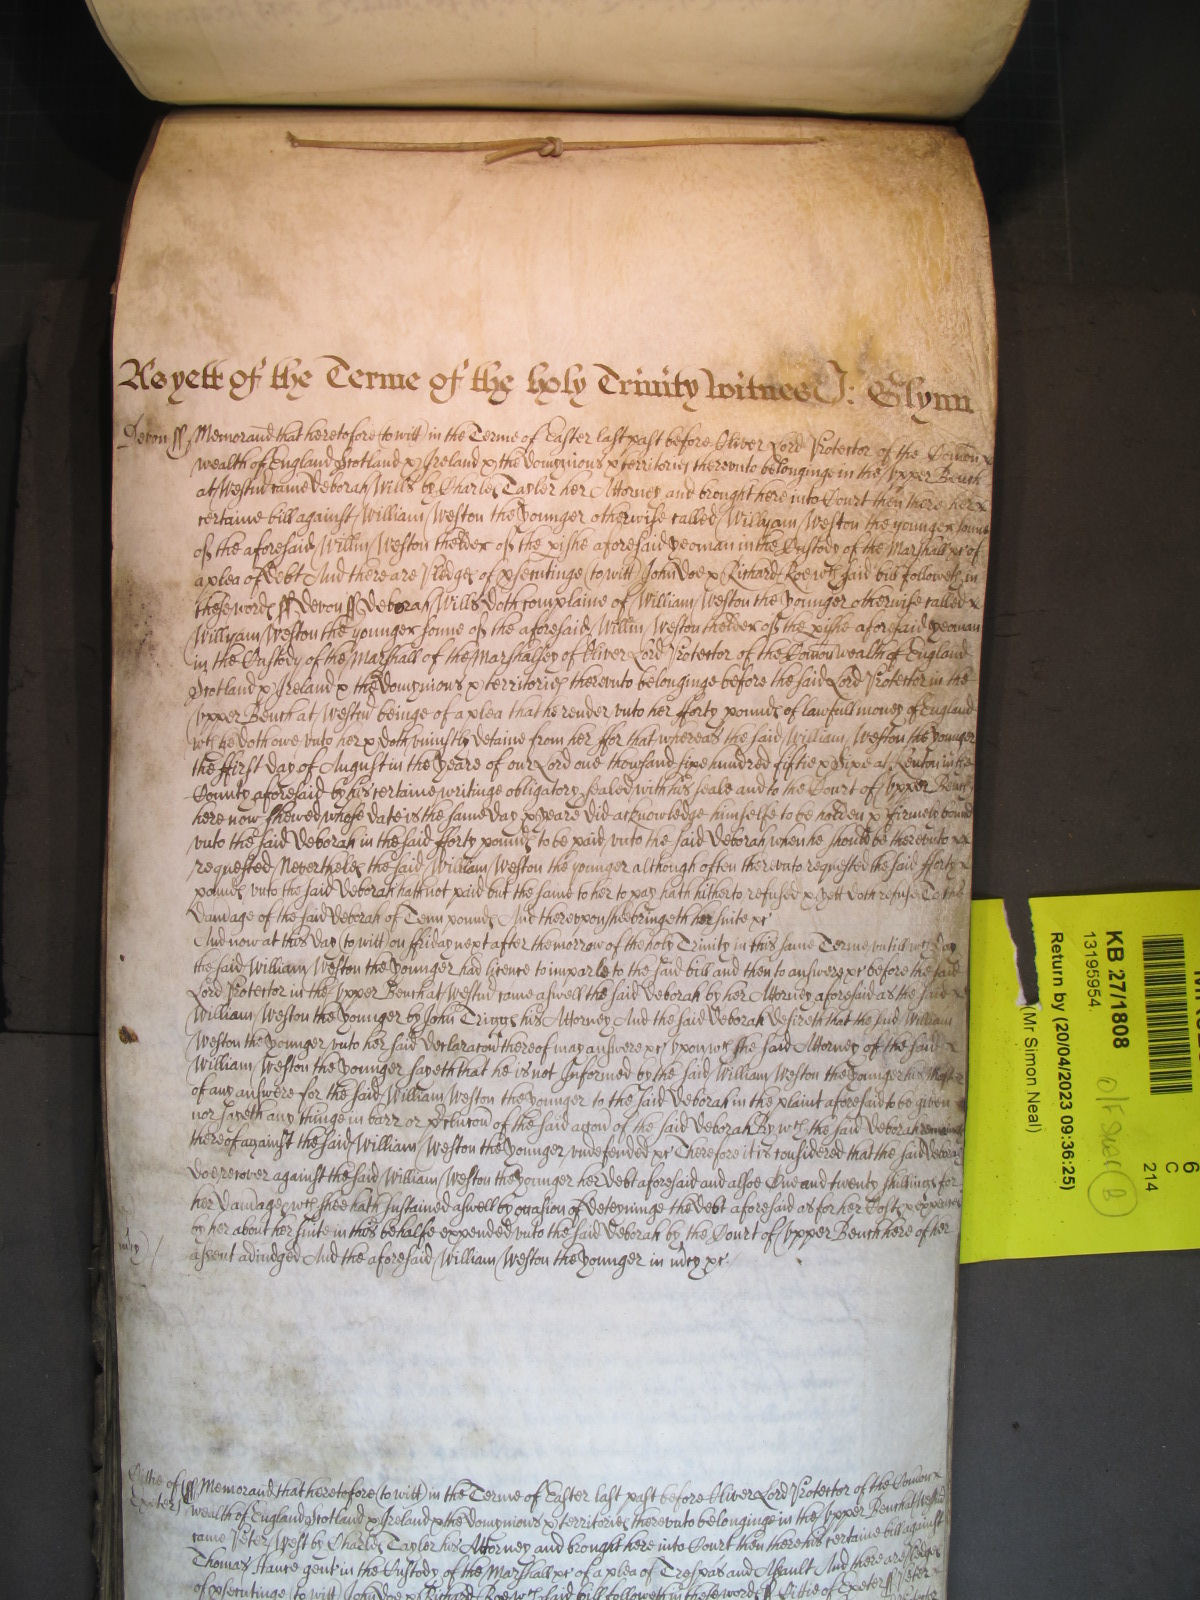 As yett of the Terme of the holy Trinity Witnes J: Glynn
Devon ss Memorand that heretofore (to witt) in the Terme of Easter last past before Oliver Lord Protector of the Comon x
wealth of England Scotland & Ireland & the dominions & territories thereunto belonginge in the Upper Bench
at Westm came Deborah Wills by Charles Tayler her Attorney and brought here into Court then there her x
certaine bill against William Weston the Younger otherwise called Willyam Weston the younger sonne
of the aforesaid Willm Weston thelder of the pishe aforesaid yeoman in the Custody of the Marshall &c of
a plea of debt And there are Pledges of psecutinge (to witt) John Doe & Richard Roe wch said bill followeth in
these words ss Devon ss Deborah Wills doth complaine of William Weston the Younger otherwise called x
Willyam Weston the younger sonne of the aforesaid Willm Weston thelder of the pishe aforesaid yeoman
in the Custody of the Marshall of the Marshalsey of Oliver Lord Protector of the Comon wealth of England
Scotland & Ireland & the dominions & territories thereunto belonginge before the said Lord Protector in the
Upper Bench at Westm beinge of a plea that he render unto her fforty pounds of lawfull money of England
wch he doth owe unto her & doth uniustly detaine from her ffor that whereas the said William Weston the younger
the ffirst day of August in the yeare of our Lord one thousand sixe hundred fiftie & sixe at Kenton in the
County aforesaid by his certaine writinge obligatory sealed with his seale and to the Court of Upper Bench
here now shewed whose date is the same day & yeare did acknowledge himselfe to be holden & firmely bound
unto the said Deborah in the said fforty pounds to be paid unto the said Deborah when he should be thereunto xx
requested Neverthelesse the said William Weston the younger although often thereunto requested the said fforty x
pounds unto the said Deborah hath not paid but the same to her to pay hath hitherto refused & yett doth refuse To the
damage of the said Deborah of Tenn pounds And thereupon shee bringeth her suite &c
And now at this day (to witt) on ffriday next after the morrow of the holy Trinity in this same Terme untill wch day
the said William Weston the Younger had licence to imparle to the said bill and then to answere &c before the said
Lord Protector in the Upper Bench at Westm came aswell the said Deborah by her Attorney aforesaid as the said x
William Weston the Younger by John Triggs his Attorney And the said Deborah desireth that the said William
Weston the Younger unto her said declaracon thereof may answere &c Upon wch the said Attorney of the said x
William Weston the Younger sayeth that he is not Informed by the said William Weston the Younger his Master
of any answere for the said William Weston the Younger to the said Deborah in the plaint aforesaid to be given x
nor sayeth any thinge in barr or pclucon of the said accon of the said Deborah By wch the said Deborah
thereof against the said William Weston the Younger undefended &c Therefore it is considered that the said Deborah
doe recover against the said William Weston the younger her debt aforesaid and alsoe One and twenty shillings for
her damages wch shee hath sustained aswell by occasion of deteyninge the debt aforesaid as for her Costs & expences
by her about her suite in this behalfe expended unto the said Deborah by the Court of Upper Bench here of her
mcy
assent adiudged And the aforesaid William Weston the Younger in mcy &c
Cittie of Exeter ss Memorand that heretofore (to witt) in the Terme of Easter last past before Oliver Lord Protector of the Comon x
wealth of England Scotland & Ireland & the dominions & territories thereunto belonginge in the Upper Bench at Westm
came Peter West by Charles Tayler his Attorney and brought here into Court then there his certaine bill against
Thomas gent in the Custody of the Marshall &c of a plea of Trespas and Assault And there are Pledges
of psecutinge (to witt) John Doe & Richard Roe wch said bill followeth in these words ss Cittie of Exeter ss Peter
KB 27/1808
13195954
Return by (20/04/2023 09:36:25)
(Mr Simon Neal)
6
C
214